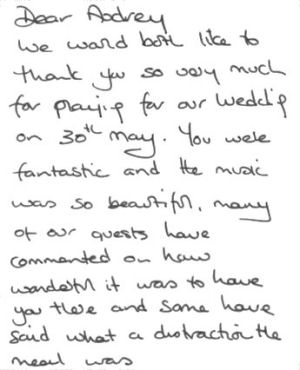 Dear Audrey
We would both like to
thank you so very much
for playing for our wedding
on 30th May. You were
fantastic and the music
was so beautiful, many
of our guests have
commented on how
wonderful it was to have
you there and some have
said what a distraction the
meal was